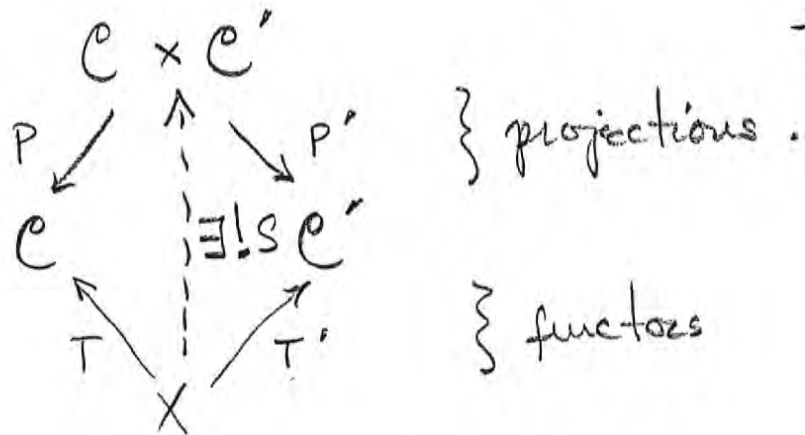 𝒞 × 𝒞′
P P′ } projections.
𝒞 ∃!S 𝒞′
T T′ } functors
X